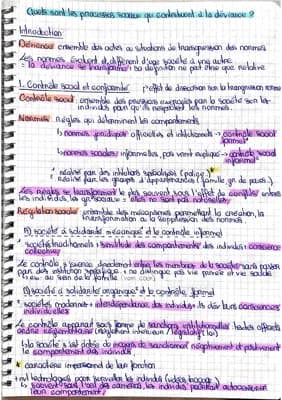 Quels sont les processus sociaux qui contribuent à la déviance ?
Introduction
Déviance : ensemble des actes ou situations de transgression des normes
Les normes évoluent et diffèrent d'une société à une autre
la déviance se transforme : sa définition ne peut être que relative
1. Contrôle social et conformité l'effet de dissuasion sur la transgression
Contrôle social : ensemble des pressions exercées par la société sur les
individus pour qu'ils respectent les normes.
Normes : Règles qui déterminent les comportements
↳ normes juridiques officielles et institutionnels → contrôle social
formel*
↳ normes sociales informelles, pas vraiment expliqué → contrôle social
informel*
* réalisé par des institutions spécialisées (police..)
* Réalisé par les groupes d'appartenance (famille, gr de pairs..)
Les règles se transforment le plus souvent sous l'effet de conflits entre
les individus, les gr sociaux = elles ne sont pas naturelles
Régulation sociale : ensemble des mécanismes permettant la création, la
transformation ou la suppression des normes.
A) société à solidarité mécanique et le contrôle informel
sociétés traditionnels : similitude des comportements des individus : conscience
collective
Le contrôle s'exerce directement entre les membres de la société sans passer
par des institution spécialisée : ne distingue pas vie privée et vie sociale
au sein de la famille
B) société à solidarité organique et le contrôle formel
sociétés modernes : interdépendance des individus : ils ont leurs consciences
individuelles
Le contrôle apparaît sous forme de sanctions institutionnelles
↳ la société s'est dotée de moyens de sanctionner négativement et positivement
le comportement des individus
* caractère impersonnel de leur fonction
+ nvl technologies pour surveiller les individus
↳ souvent sous l'œil des caméras, les individus
leur comportement